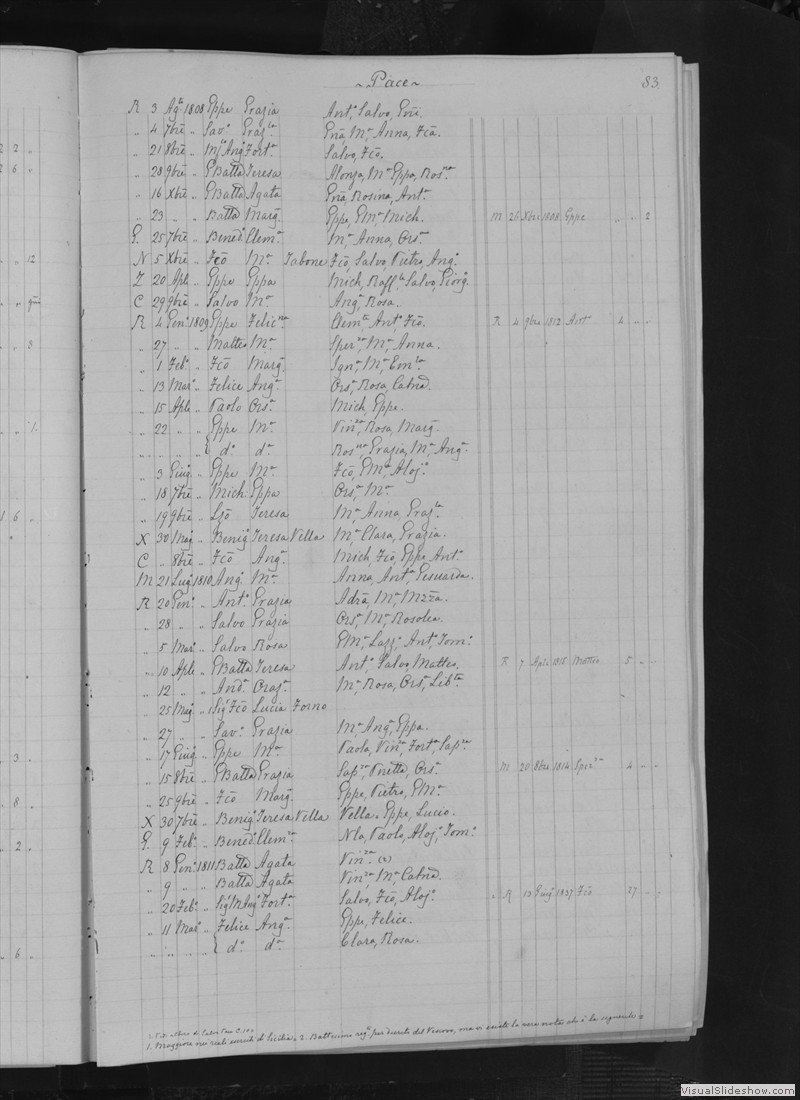 ~ Pace ~ 83.
R 3 Agᵒ 1808 Gppe Grazia Antᵒ Salvo, Gni
„ 4 7bre „ Savᵒ Grazˡᵃ Gna, Mᵃ Anna, Fca.
„ 21 8bre „ Angᵒ Fortᵃ Salvo, Fco.
„ 28 9bre „ GBatta Teresa Alonza, Mᵃ Gppa, Rosⁿᵃ
„ 16 Xbre „ GBatta Agata Gna, Rosina, Antᵃ
„ 23 „ „ Batta Margᵃ Gppe, GMᵃ Mich. M 26 Xbre 1808 Gppe „ „ 2
G. 25 7bre „ Benedᵒ Clemᵃ Mᵃ Anna, Orsᵃ
N 5 Xbre „ Fco Mᵃ Tabone Fco, Salvo, Pietro, Angᵒ
Z 20 Aple „ Gppe Gppa Mich, Raffˡᵃ Salvo, Giorgᵒ
C 29 9bre „ Salvo Mᵃ Angᵃ, Rosa.
R 4 Genᵒ 1809 Gppe Felicⁿᵃ Clemᵗᵉ Antᵒ Fco. R 4 9bre 1812 Antᵒ 4 „ „
„ 27 „ „ Matteo Mᵃ Sperᶻᵃ, Mᵃ Anna.
„ 1 Febᵒ „ Fco Margᵃ Ignᵒ, Mᵃ, Emˡᵃ
„ 13 Marᵒ „ Felice Angᵃ Orsᵃ, Rosa, Catna.
„ 15 Aple „ Paolo Orsᵃ Mich, Gppe.
„ 22 „ „ Gppe Mᵃ Vinᶻᵃ, Rosa, Margᵃ
„ „ „ „ dᵒ dᵃ Rosⁿᵃ, Grazia, Mᵃ, Angᵃ
„ 3 Giugᵒ „ Gppe Mᵃ Fco, GMᵃ, Alojᵒ
„ 18 7bre „ Mich. Gppa Orsᵃ Mᵃ
„ 19 9bre „ Lzo Teresa Mᵃ Anna, Grazˡᵃ
X 30 Magᵒ „ Benigᵒ Teresa Vella Mᵃ Clara, Grazia.
C „ 8bre „ Fco Angᵃ Mich, Fco, Gppe Antᵒ
M 21 Lugᵒ 1810 Angᵒ Mᵃ Anna, Antᵃ
R 20 Genᵒ „ Antᵒ Grazia Adra, Mᵃ, Mzza.
„ 28 „ „ Salvo Grazia Orsᵃ, Mᵃ, Rosolea.
„ 5 Marᵒ „ Salvo Rosa GMᵃ, Antᵒ, Tomᵒ
„ 10 Aple „ GBatta Teresa Antᵒ, Salvo, Matteo. R 7 Aple 1815 Matteo 5 „ „
„ 12 „ „ Andᵃ Orazᵃ Mᵃ, Rosa, Orsᵃ, Libᵗᵃ
„ 25 Magᵒ „ Sigᵒ Fco Lucia Forno
„ 27 „ „ Savᵒ Grazia Mᵃ, Angᵃ, Gppa.
„ 17 Giugᵒ „ Gppe Mᵃ Paola, Vinᶻᵃ, Fortᵃ, Sapᶻᵃ
„ 15 8bre „ GBatta Grazia Sapᶻᵃ, Pnetta, Orsᵃ M 20 8bre 1814 Sperᶻᵃ 4 „ „
„ 25 9bre „ Fco Margᵃ Gppe, Pietro, GMᵃ
X 30 7bre „ Benigᵒ Teresa Vella Vella, Gppe, Lucio.
G. 9 Febᵒ „ Benedᵒ Clemᶻᵃ Nla, Paolo, Alojᵒ, Tomᵒ
R 8 Genᵒ 1811 Batta Agata Vinᶻᵃ
„ 9 „ „ Batta Agata Vinᶻᵃ Mᵃ, Catna.
„ 20 Febᵒ „ Sigᵒ M Angᵒ Fortᵃ Salvo, Fco, Alojᵒ „ R 13 Giugᵒ 1837 Fco 27 „ „
„ 11 Marᵒ „ Felice Angᵃ Gppe, Felice.
„ „ „ „ dᵒ dᵃ Clara, Rosa.
1. Maggiore nei reali eserciti di Sicilia, 2. Battesimo regᵒ per decreto del Vescovo, ma vi esiste la vera nota che è la seguente
VisualSlideshow.com